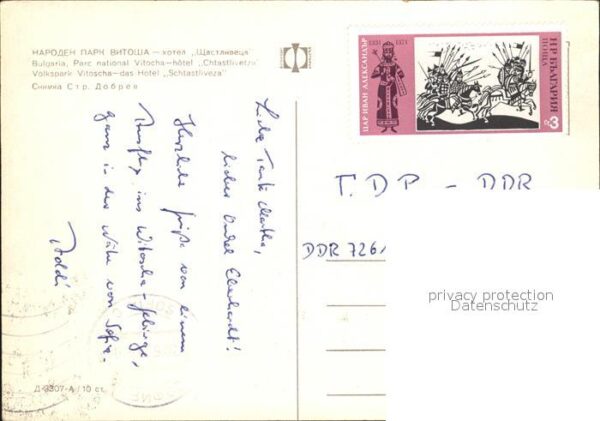 НАРОДЕН ПАРК ВИТОША — хотел „Щастливеца“
Bulgaria, Parc national Vitocha—hôtel „Chtastlivetza“
Volkspark Vitoscha—das Hotel „Schtastliveza“
Снимка Стр. Добрев
Liebe Tante Martha,
lieber Onkel Eberhardt!
Herzliche Grüße von einem
Ausflug ins Witoscha-Gebirge,
ganz in der Nähe von Sofia.
Addi
Д-9307-А / 10 ст.
ЦАР ИВАН АЛЕКСАНДЪР
1331 1371
НР БЪЛГАРИЯ
ПОЩА
3
T.DP - DDR
DDR 726
privacy protection
Datenschutz